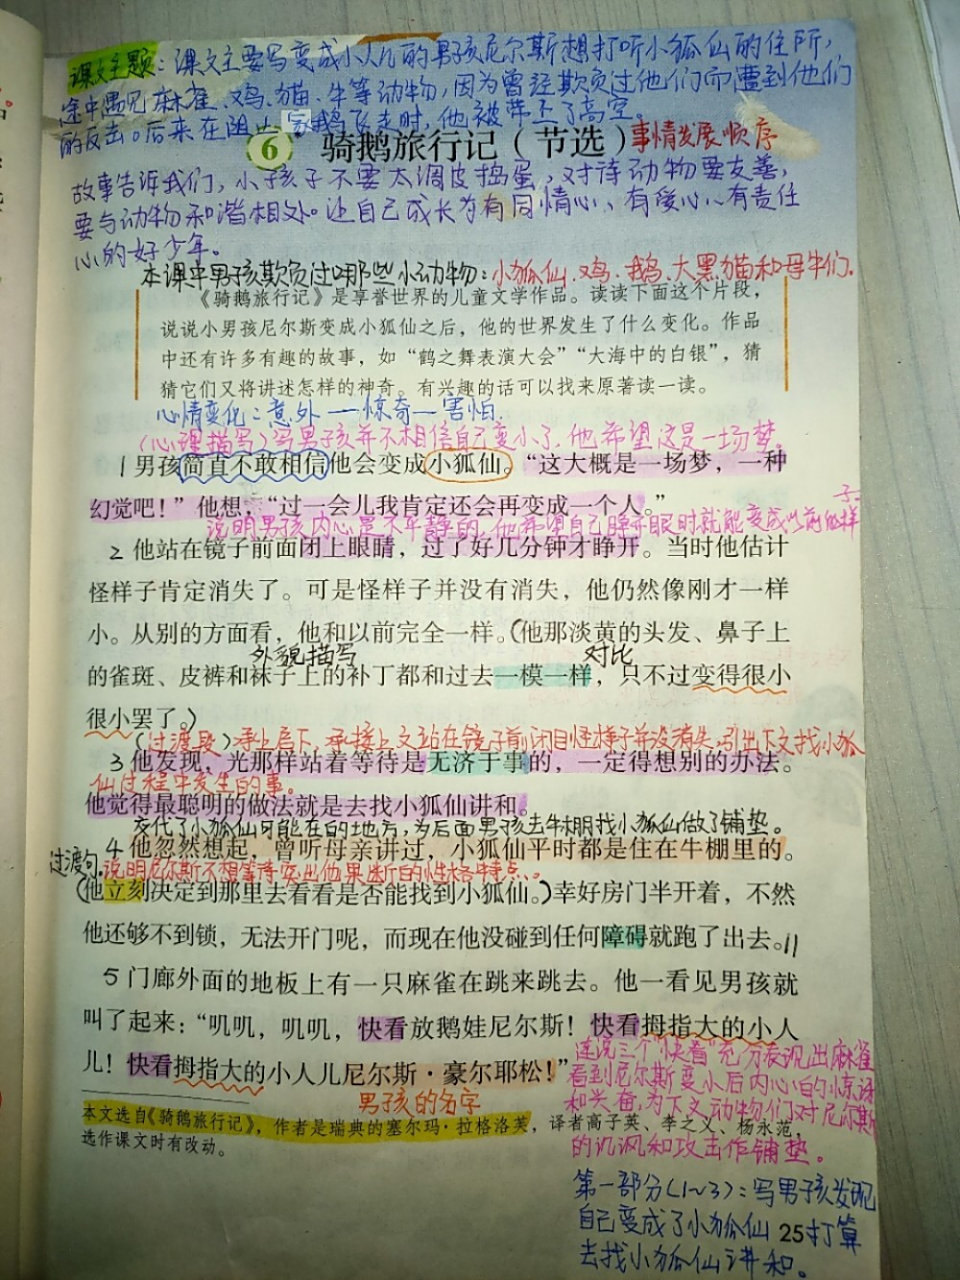 课文主题：课文主要写变成小人儿的男孩尼尔斯想打听小狐仙的住所，
途中遇见麻雀、鸡、猫、牛等动物，因为曾经欺负过他们而遭到他们
的反击。后来在阻止家鹅飞走时，他被带上了高空。
6 骑鹅旅行记（节选）事情发展顺序
故事告诉我们，小孩子不要太调皮捣蛋，对待动物要友善，
要与动物和谐相处。让自己成长为有同情心、有爱心、有责任
心的好少年。
本课中男孩欺负过哪些小动物：小狐仙、鸡、鹅、大黑猫和母牛们.
《骑鹅旅行记》是享誉世界的儿童文学作品。读读下面这个片段，
说说小男孩尼尔斯变成小狐仙之后，他的世界发生了什么变化。作品
中还有许多有趣的故事，如“鹤之舞表演大会”“大海中的白银”，猜
猜它们又将讲述怎样的神奇。有兴趣的话可以找来原著读一读。
心情变化：意外—惊奇—害怕.
（心理描写）写男孩并不相信自己变小了，他希望这是一场梦。
1 男孩简直不敢相信他会变成小狐仙。“这大概是一场梦，一种
幻觉吧！”他想，“过一会儿我肯定还会再变成一个人。”
子.
说明男孩内心是不平静的，他希望自己睁开眼时就能变成以前的样
2 他站在镜子前面闭上眼睛，过了好几分钟才睁开。当时他估计
怪样子肯定消失了。可是怪样子并没有消失，他仍然像刚才一样
小。从别的方面看，他和以前完全一样。（他那淡黄的头发、鼻子上
外貌描写 对比
的雀斑、皮裤和袜子上的补丁都和过去一模一样，只不过变得很小
很小罢了。）
（过渡段）承上启下，承接上文站在镜子前闭目怪样子并没消失，引出下文找小狐
3 他发现，光那样站着等待是无济于事的，一定得想别的办法。
仙过程中发生的事。
他觉得最聪明的做法就是去找小狐仙讲和。
交代了小狐仙可能在的地方，为后面男孩去牛棚找小狐仙做了铺垫。
4 他忽然想起，曾听母亲讲过，小狐仙平时都是住在牛棚里的。
过渡句. 说明尼尔斯不想等待突出他果断的性格特点。
（他立刻决定到那里去看看是否能找到小狐仙。）幸好房门半开着，不然
他还够不到锁，无法开门呢，而现在他没碰到任何障碍就跑了出去。//
5 门廊外面的地板上有一只麻雀在跳来跳去。他一看见男孩就
叫了起来：“叽叽，叽叽，快看放鹅娃尼尔斯！快看拇指大的小人
儿！快看拇指大的小人儿尼尔斯·豪尔耶松！”
男孩的名字
连说三个“快看”充分表现出麻雀
看到尼尔斯变小后内心的惊讶
和兴奋，为下文动物们对尼尔斯
的讥讽和攻击作铺垫。
本文选自《骑鹅旅行记》，作者是瑞典的塞尔玛·拉格洛芙，译者高子英、李之义、杨永范，
选作课文时有改动。
第一部分（1~3）：写男孩发现
自己变成了小狐仙 25 打算
去找小狐仙讲和。